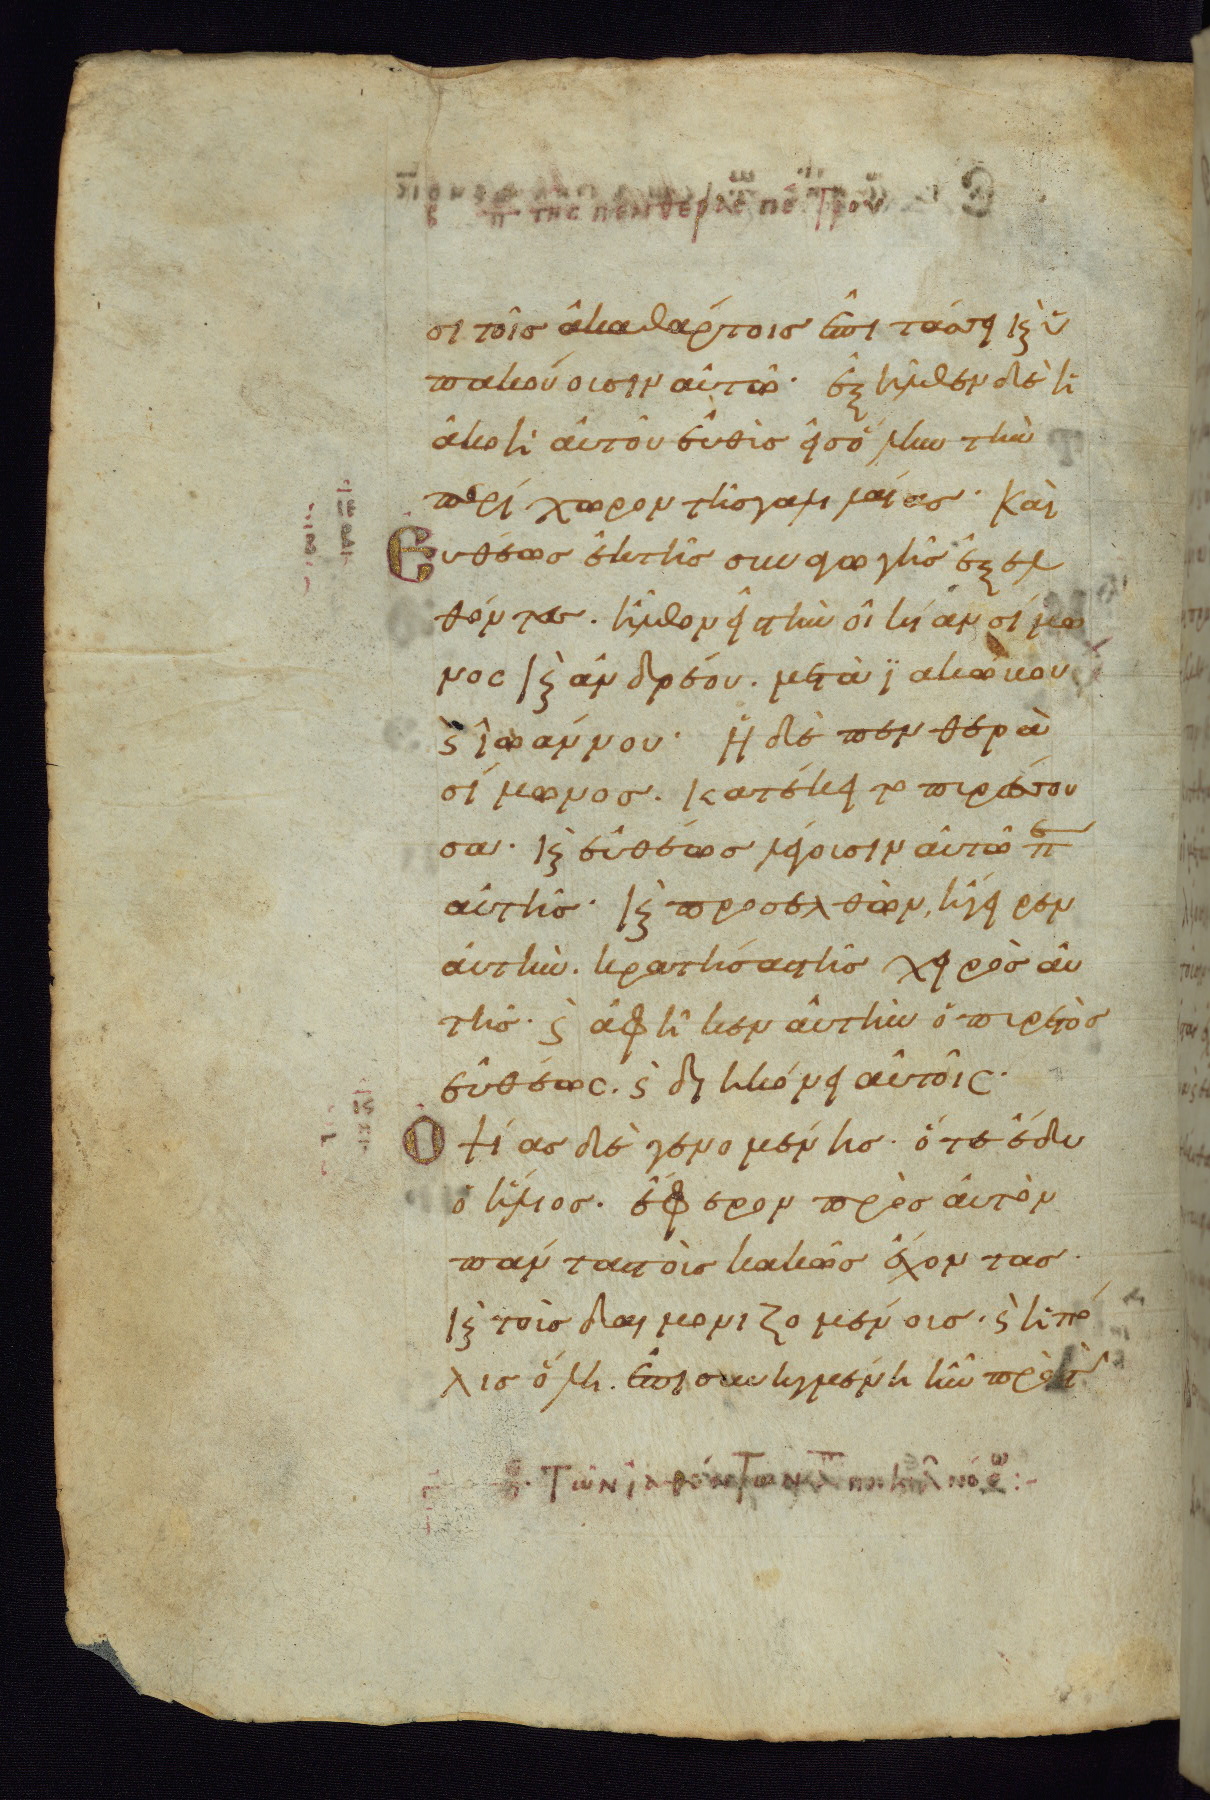 β π της πενθερὰς πέτρου
σι τοῖς ἀκαθάρτοις ἐπιτάσσει κ(αὶ) ὑ
πακούουσιν αὐτῶ· ἐξῆλθεν δὲ ἡ
ἀκοὴ αὐτοῦ εὐθὺς εἰς ὅλην τὴν
περίχωρον τῆς γαλιλαίας· Καὶ
Εὐθέως ἐκ τῆς συναγωγῆς ἐξελ
θόντες. ἦλθον εἰς τὴν οἰκίαν σίμω
νος κ(αὶ) ἀνδρέου. μετὰ ϊακώβου
κ(αὶ) ἰωάννου· Ἡ δὲ πενθερὰ
σίμωνος. κατέκειτο πυρέσσου
σα· κ(αὶ) εὐθέως λέγουσιν αὐτῶ π(ερὶ)
αὐτῆς· κ(αὶ) προσελθὼν, ἤγειρεν
αὐτὴν. κρατήσας τῆς χειρὸς αὐ
τῆς· κ(αὶ) ἀφῆκεν αὐτὴν ὁ πυρετὸς
εὐθέως. κ(αὶ) διηκόνει αὐτοῖς·
Ὀψίας δὲ γενομένης· ὅτε ἔδυ
ὁ ἥλιος. ἔφερον πρὸς αὐτὸν
πάντας τοὺς κακῶς ἔχοντας·
κ(αὶ) τοὺς δαιμονιζομένους· κ(αὶ) ἡ πό
λις ὅλη. ἐπισυνηγμένη ἦν πρὸς τὴν
π· Τῶν ἰαθέντων ἀπὸ ποικίλ νόσων:-